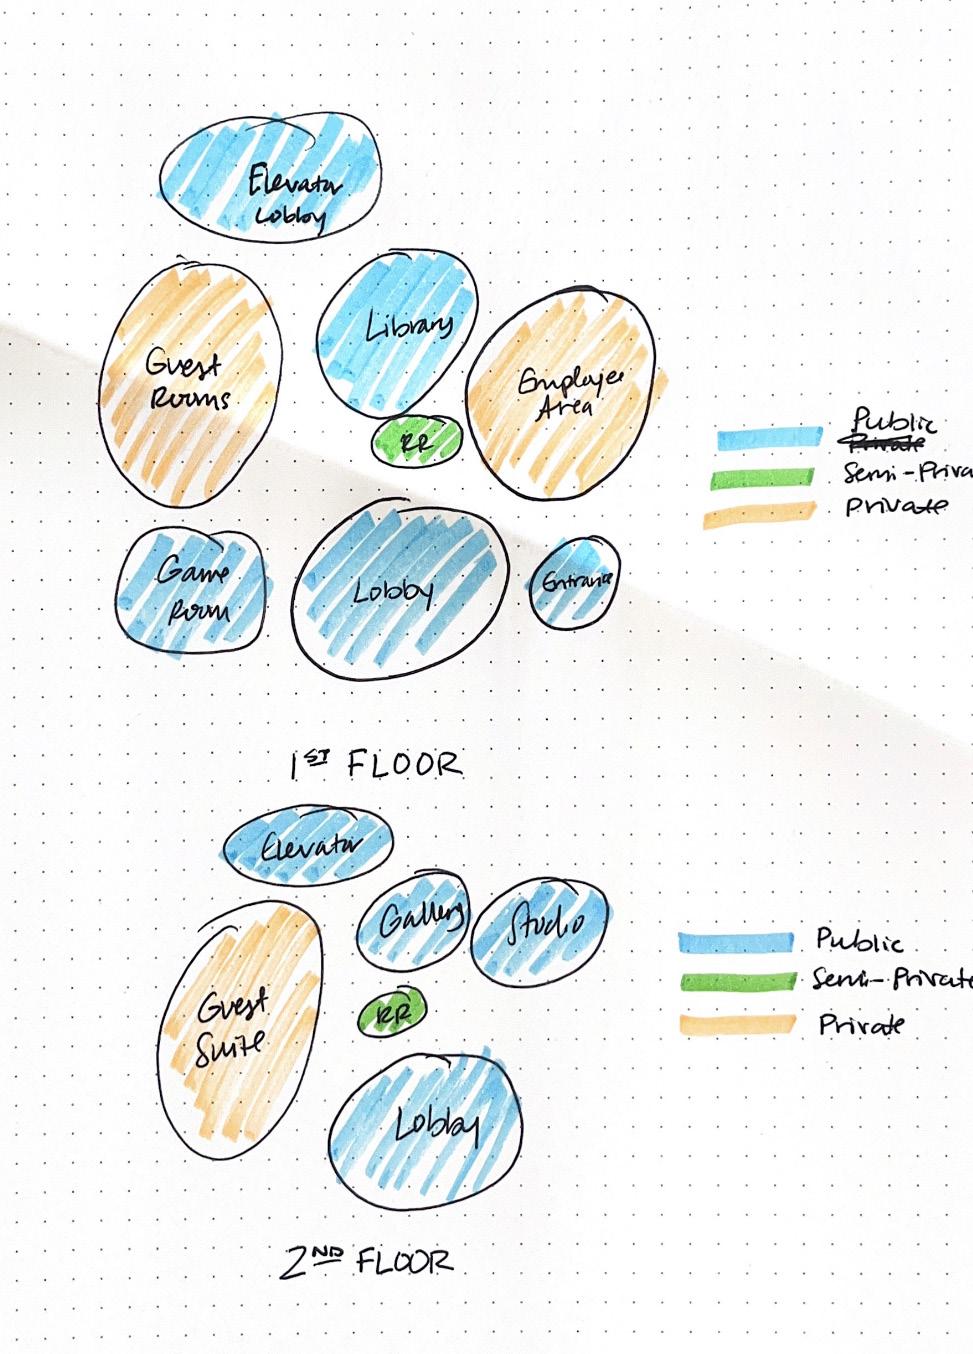 Elevator
Lobby
Library
Guest
Rooms
Employee
Area
RR
Public
Private
Semi-Priva
Private
Game
Room
Lobby
Entrance
1ST FLOOR
Elevator
Gallery
Studio
Public
Semi-Private
Private
Guest
Suite
RR
Lobby
2ND FLOOR